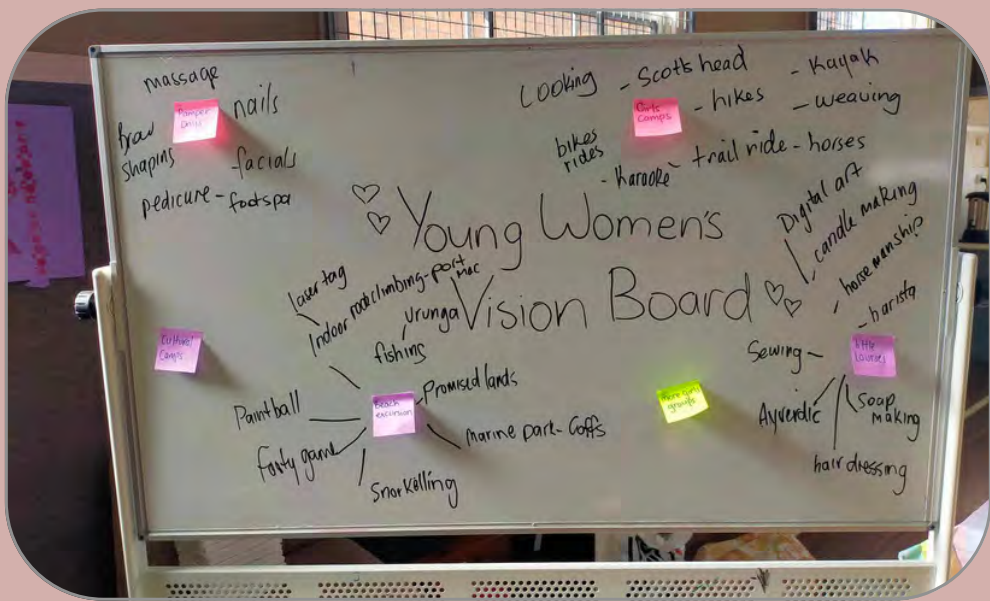 massage
Pamper
Days
nails
Brow
shaping
- facials
pedicure - footspa
Looking
- Scotts head
- Kayak
Girls
Camps
- hikes
- weaving
bikes
rides
- Karaoke
- trail ride - horses
Young Women's
Vision Board
Digital art
candle making
- horsemanship
- barista
Sewing -
little
courses
Ayverdic
Soap
making
hair dressing
Cultural
Camps
laser tag
Indoor rock climbing - port
mac
urunga
fishing
Beach
excursion
Promised lands
Paintball
footy game
marine park - Coffs
Snorkelling
more girls
groups